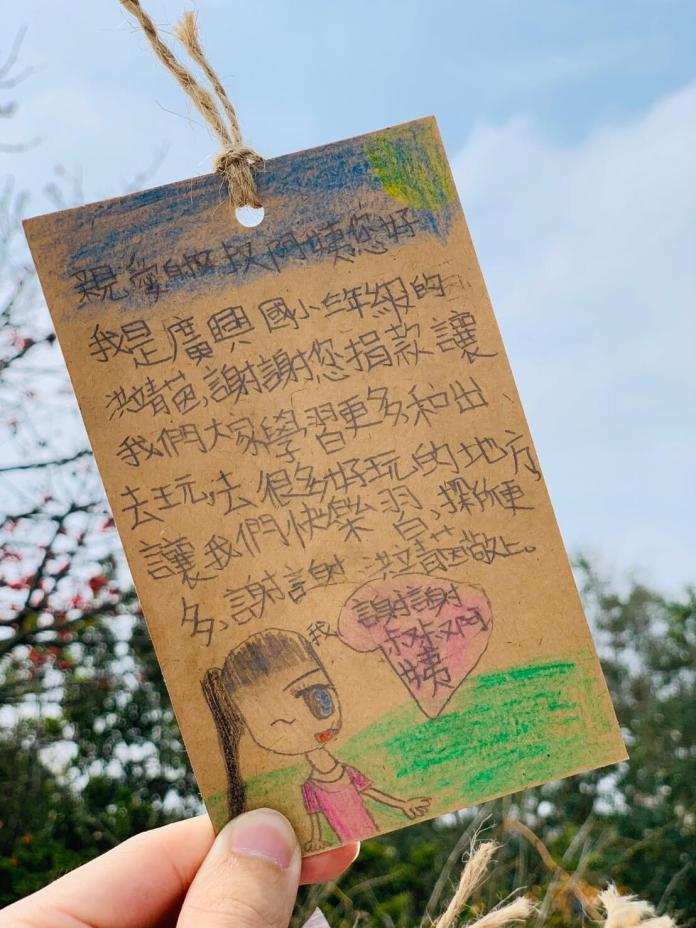 親愛的叔叔阿姨您好
我是廣興國小三年級的
洪靖茵,謝謝您捐款讓
我們大家學習更多,和出、
去玩,去很多好玩的地方,
讓我們快樂習、探所更
多,謝謝 洪靖茵敬上。
我
謝謝
叔叔阿
姨